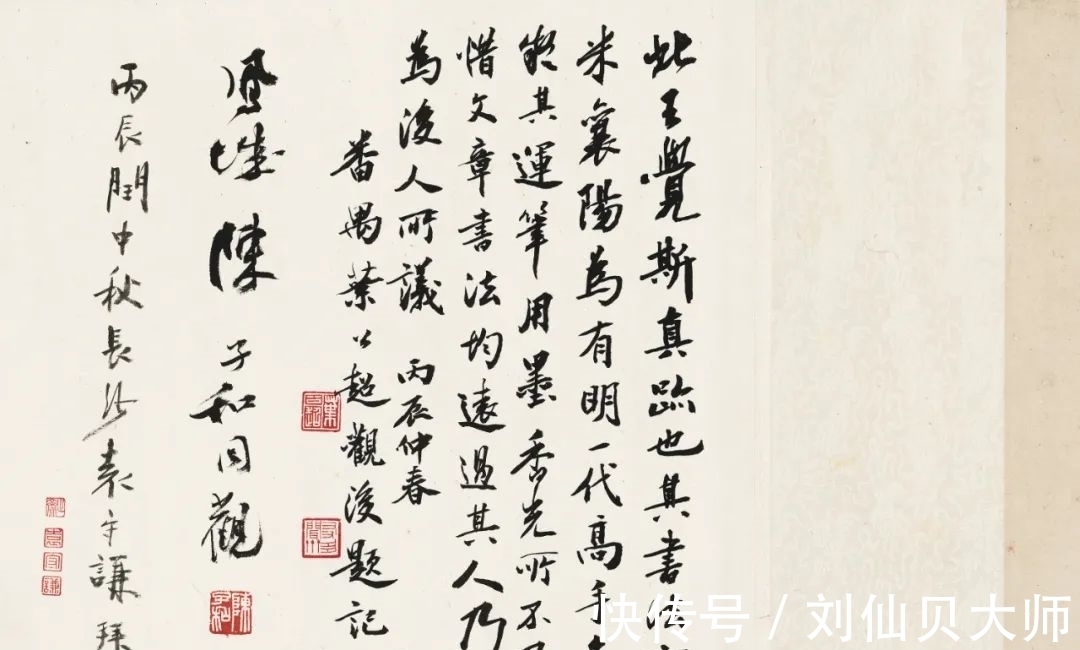 此王覺斯真跡也其書法
米襄陽為有明一代高手
其運筆用墨香光所不及
惜文章書法均遠過其人乃
為後人所議 丙辰仲春
番禺葉公超觀後題記
陳子和同觀
丙辰閏中秋長沙袁守謙拜
陳子和
袁守謙
快传号 / 刘仙贝大师